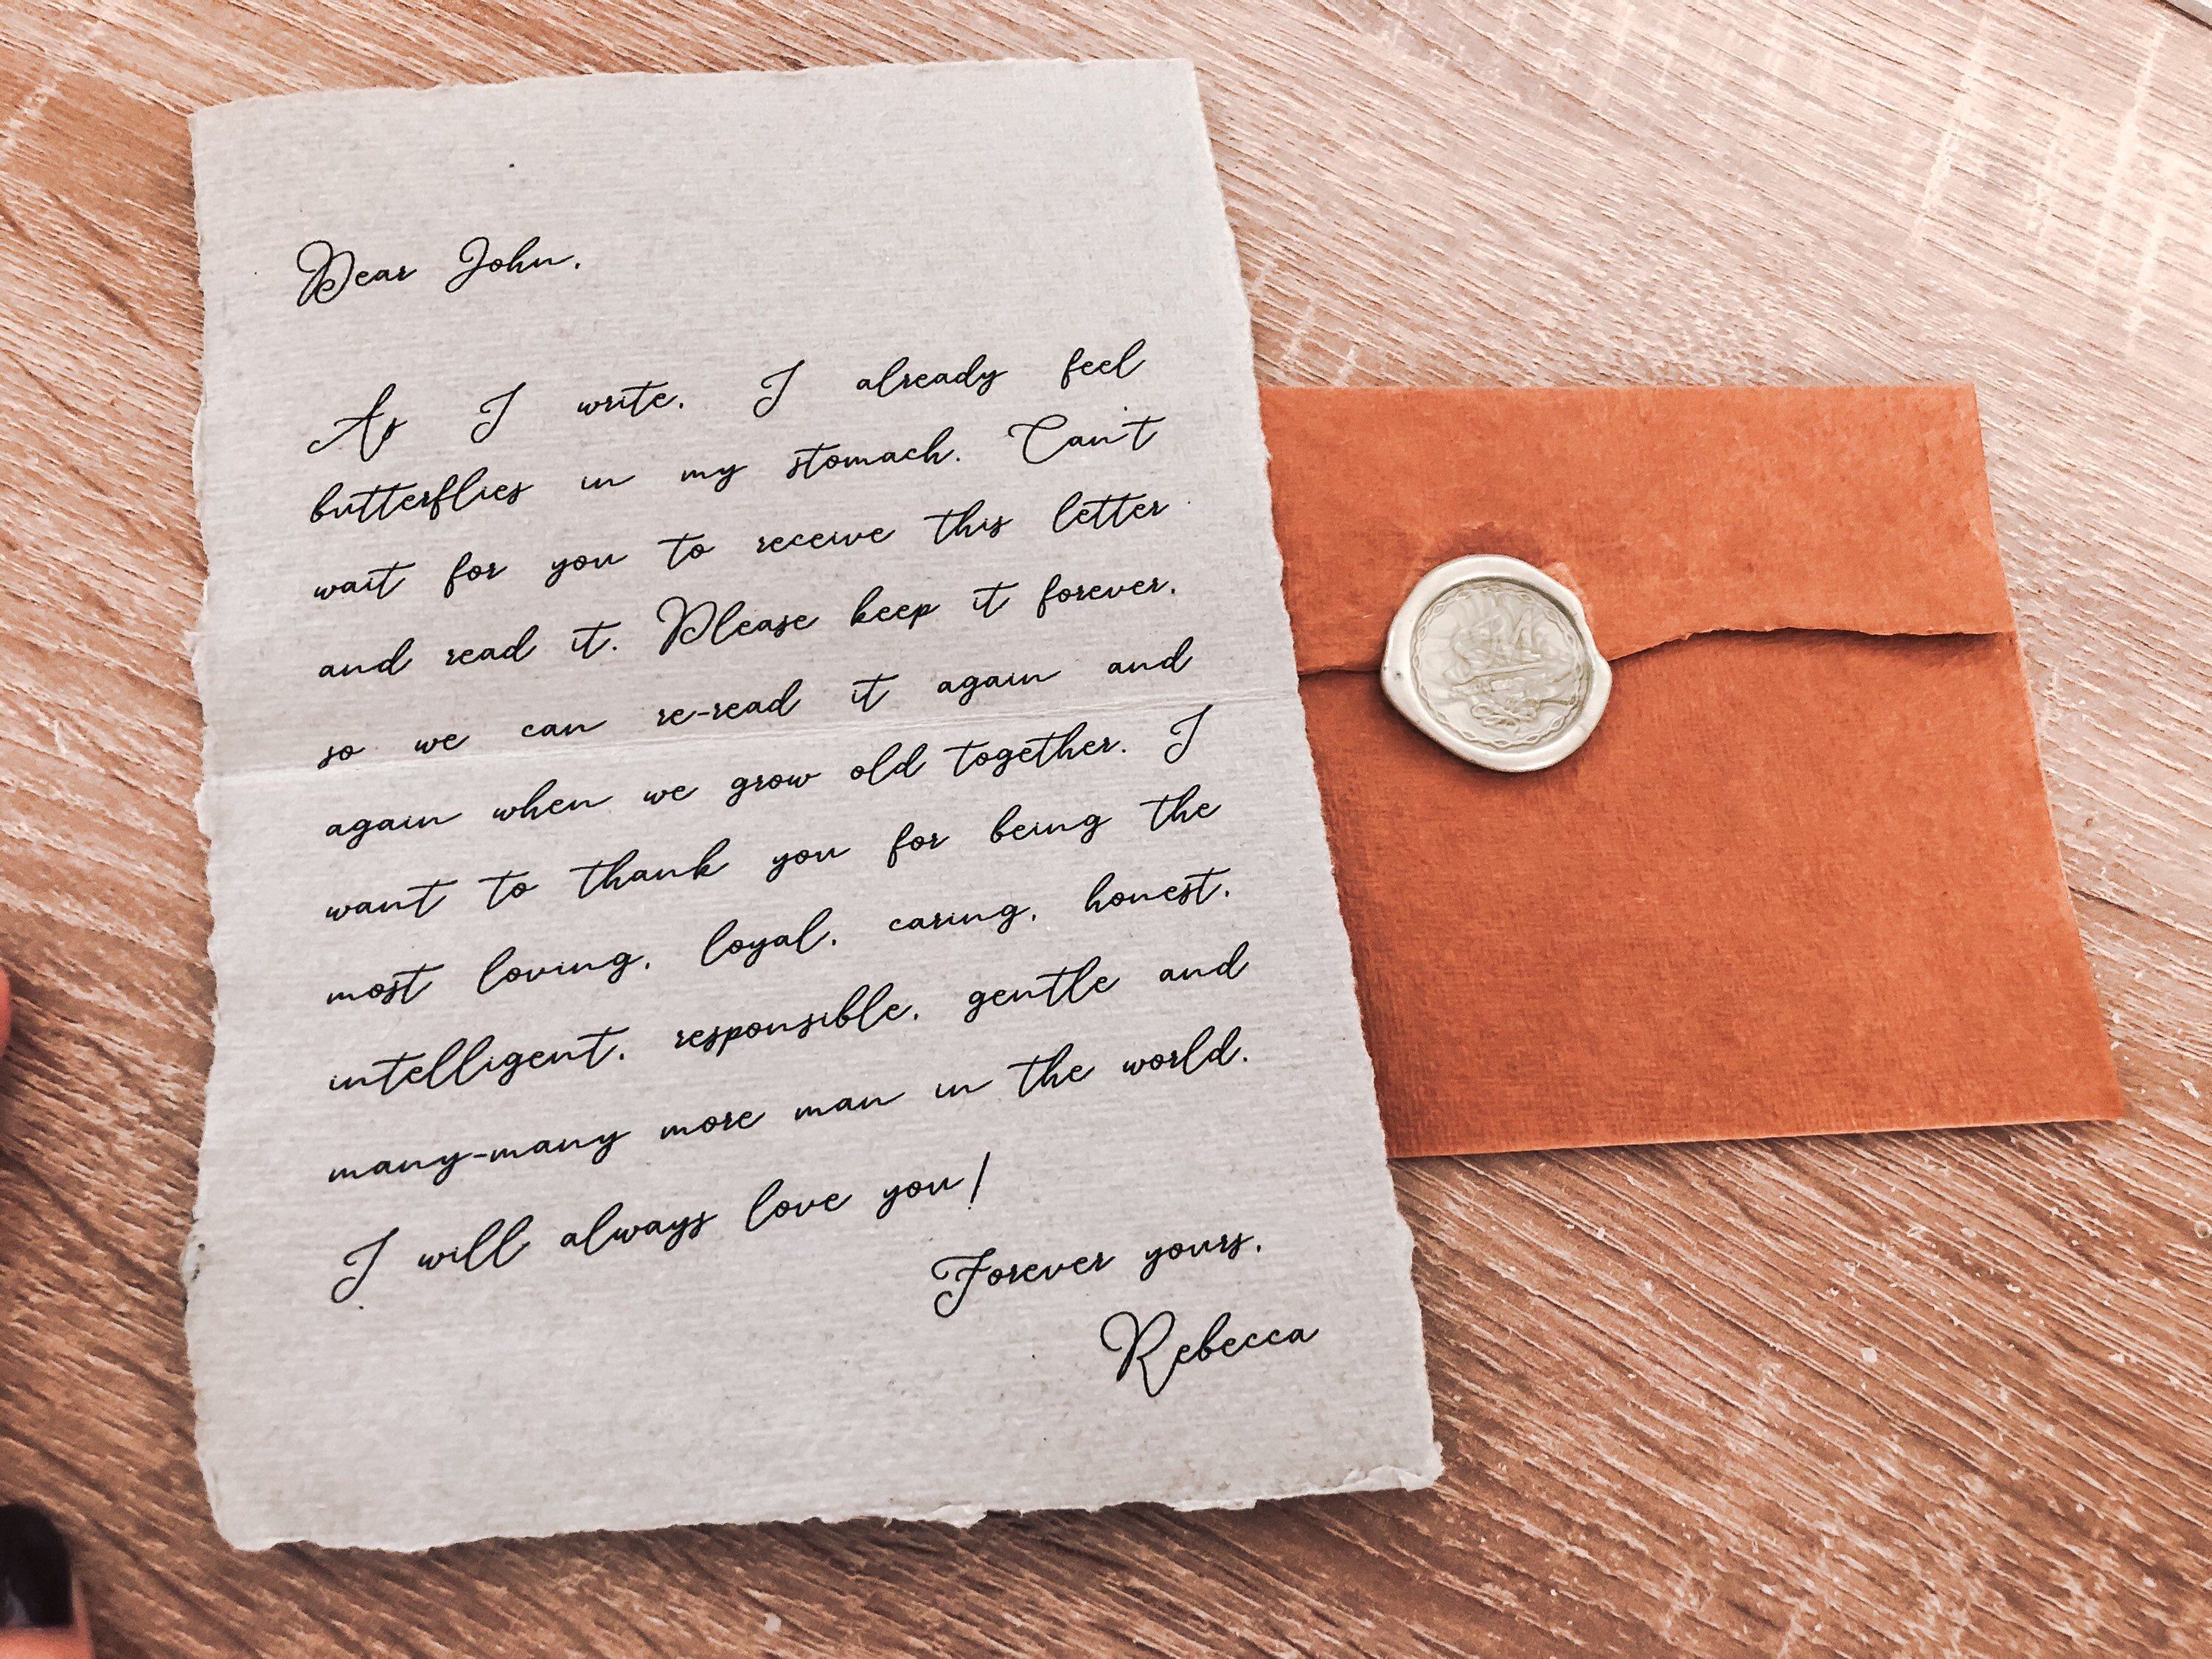 Dear John,
As I write, I already feel
butterflies in my stomach. Can't
wait for you to receive this letter
and read it. Please keep it forever,
so we can re-read it again and
again when we grow old together. I
want to thank you for being the
most loving, loyal, caring, honest,
intelligent, responsible, gentle and
many-many more man in the world.
I will always love you!
Forever yours,
Rebecca